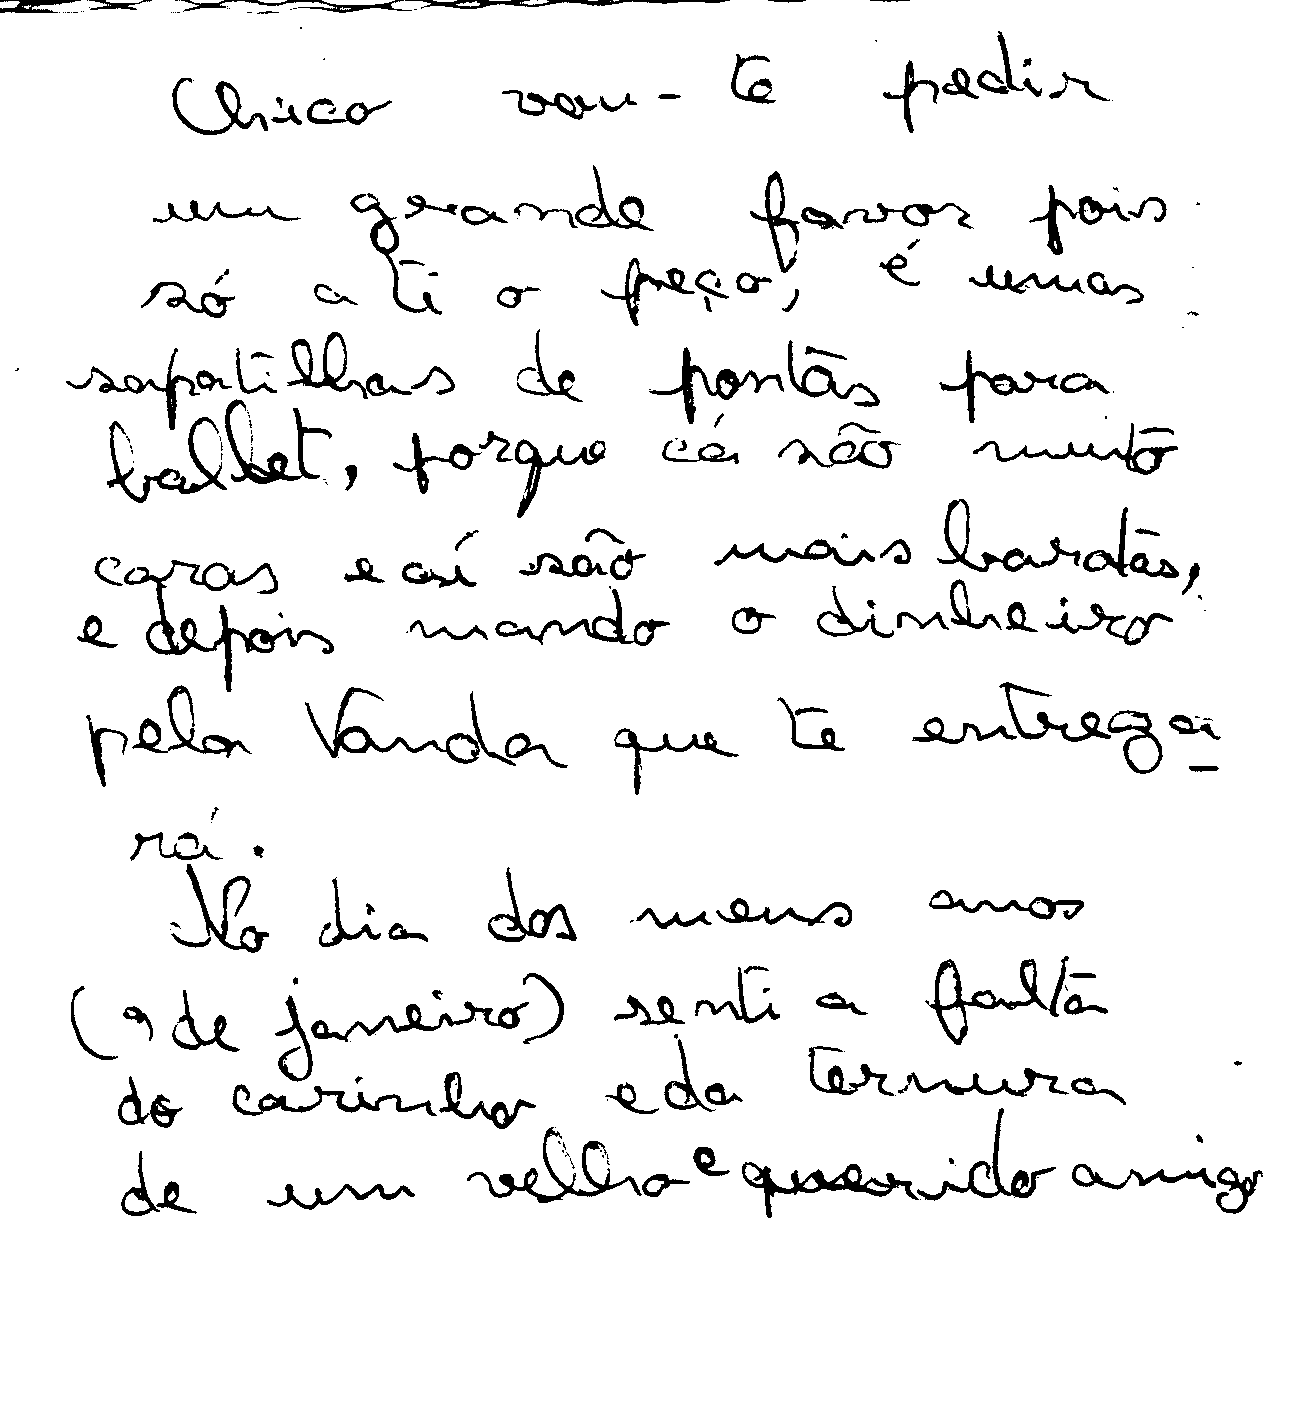 Chico vou-te pedir
um grande favor pois
só a ti o peço, é umas
sapatilhas de pontas para
ballet, porque cá são muito
caras e aí são mais baratas,
e depois mando o dinheiro
pela Vanda que te entrega-
rá.
No dia dos meus anos
(9 de janeiro) senti a falta
do carinho e da ternura
de um velho e querido amigo